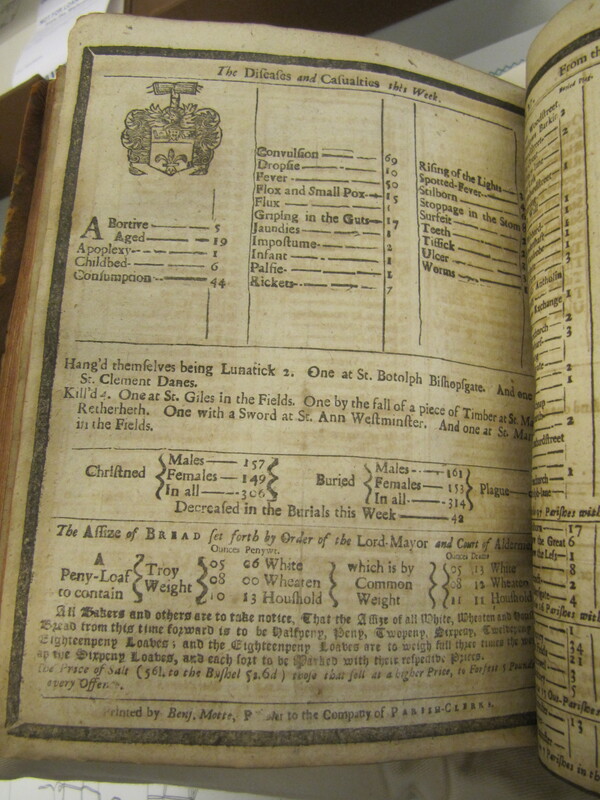 The Diseases and Casualties this Week.
ABortive 5
Aged 19
Apoplexy 1
Childbed 6
Consumption 44
Convulsion 69
Dropsie 10
Fever 50
Flox and Small Pox 15
Flux 1
Griping in the Guts 17
Jaundies 1
Impostume 2
Infant 1
Palsie 1
Rickets 7
Rising of the Lights
Spotted-Fever
Stilborn
Stoppage in the Stom
Surfeit
Teeth
Tissick
Ulcer
Worms
Hang'd themselves being Lunatick 2. One at St. Botolph Bishopsgate. And one
St. Clement Danes.
Kill'd 4. One at St. Giles in the Fields. One by the fall of a piece of Timber at St. Ma
Retherheth. One with a Sword at St. Ann Westminster. And one at St. Mar
in the Fields.
Christned Males 157 Females 149 In all 306
Buried Males 161 Females 153 In all 314
Plague
Decreased in the Burials this Week 42
The Assize of BREAD set forth by Order of the Lord-Mayor and Court of Aldermen
A Peny-Loaf to contain
Troy Weight
Ounces Penywt.
05 06 White
08 00 Wheaten
10 13 Houshold
which is by Common Weight
Ounces Drams
05 13 White
08 12 Wheaten
11 11 Houshold
All Bakers and others are to take notice, That the Assize of all White, Wheaten and Houshold
Bread from this time forward is to be Halfpeny, Peny, Twopeny, Sixpeny, Twelvepeny
Eighteenpeny Loaves; and the Eighteenpeny Loaves are to weigh full three times the
of the Sixpeny Loaves, and each sort to be Marked with their respective Prices.
The Price of Salt (56l. to the Bushel 5s.6d) those that sell at a higher Price, to Forfeit 5 Pound
every Offence.
Printed by Benj. Motte, Printer to the Company of PARISH-CLERKS.
From th